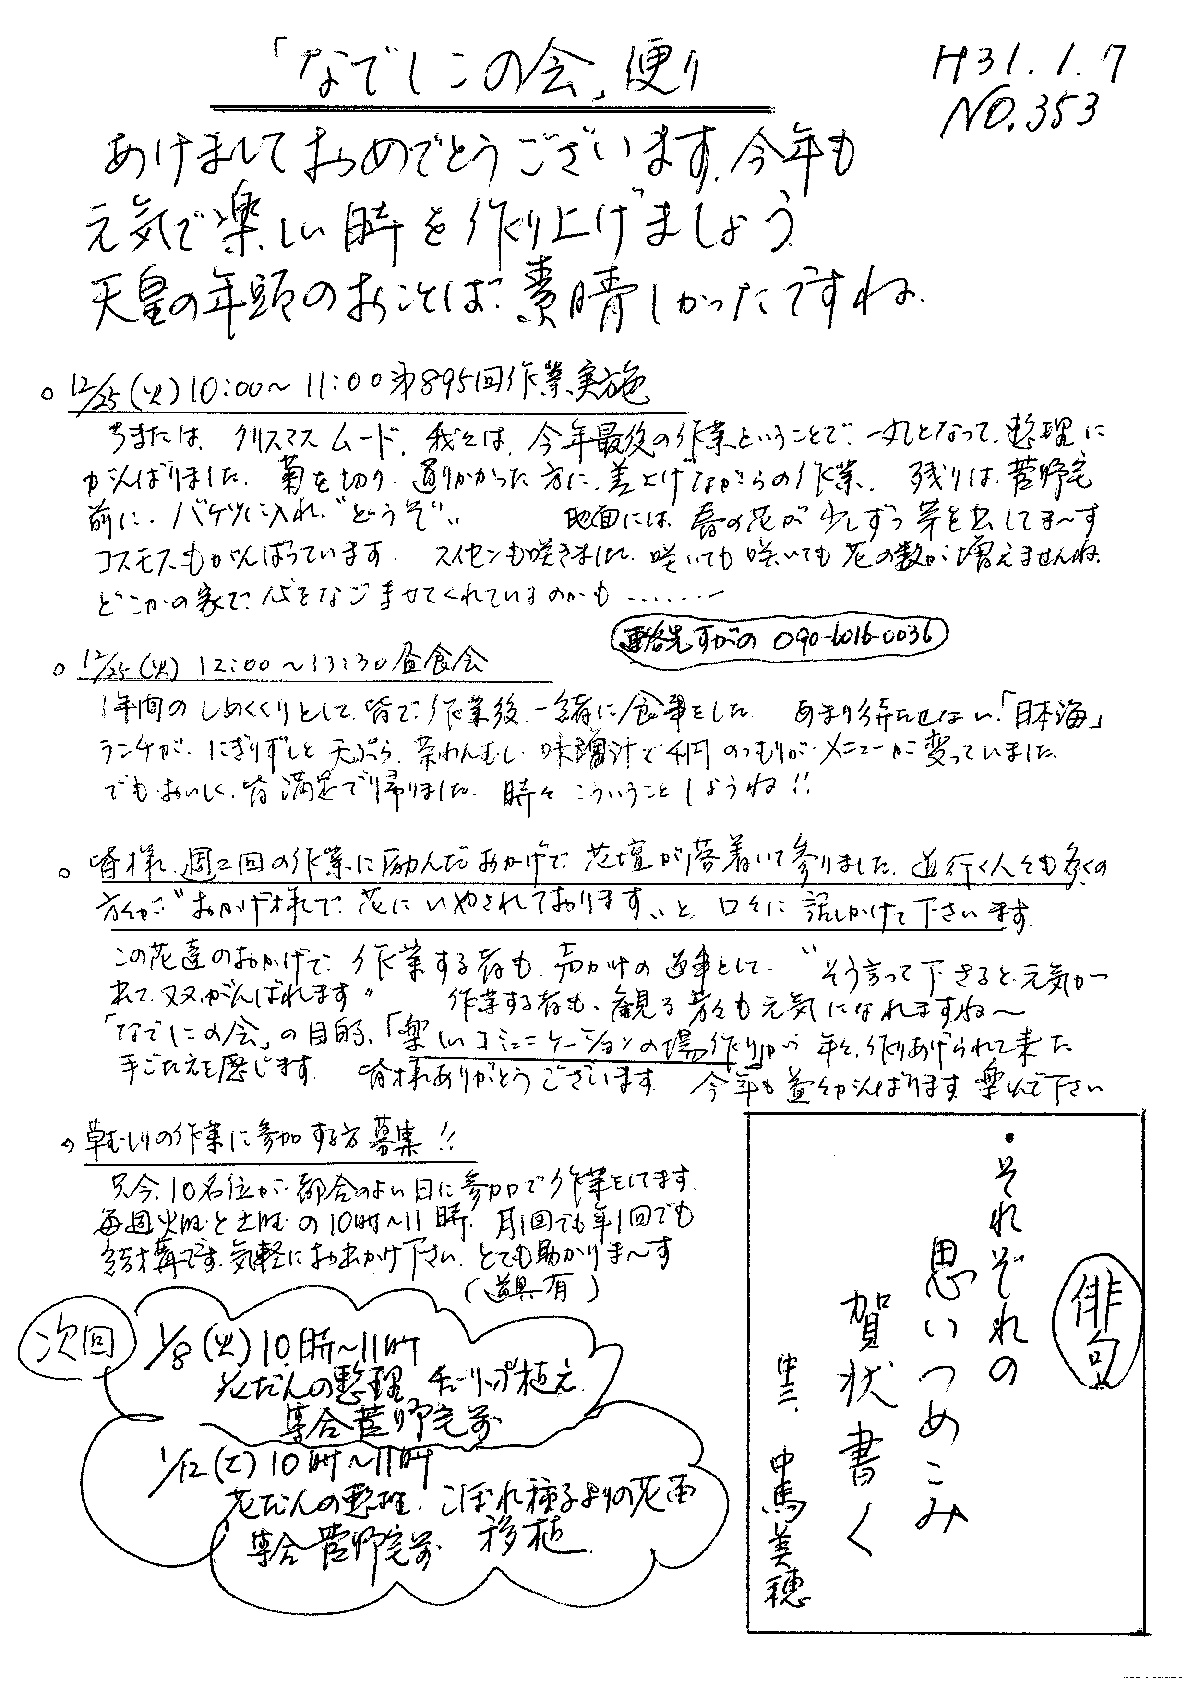 「なでしこの会」便り
H31.1.7
NO.353
あけましておめでとうございます。今年も
元気で楽しい時を作り上げましょう
天皇の年頭のおことば、素晴しかったですね。
○12/25(火)10:00~11:00第895回作業実施
ちまたは、クリスマスムード、我々は、今年最後の作業ということで、一丸となって、整理に
がんばりました。菊を切り、通りかかった方に、差上げながらの作業。残りは、菅野宅
前に、バケツに入れ、"どうぞ" 地面には、春の花が少しずつ芽を出してま～す
コスモスもがんばっています。スイセンも咲きました。咲いても咲いても花の数が増えませんね。
どこかの家で、心をなごませてくれているのかも.......
連絡先すがの 090-6016-0036
○12/25(火)12:00~13:30昼食会
1年間のしめくくりとして、皆で作業後、一緒に食事をした。あまり待たせない、「日本海」
ランチが、にぎりずしと天ぷら、茶わんむし、味噌汁で千円のつもりが、メニューが変っていました。
でもおいしく、皆満足で帰りました。時々こういうことしようね!!
○皆様、週二回の作業に励んだおかげで、花壇が落着いて参りました。道行く人々も多くの
方々が"おかげ様で、花にいやされております"と、口々に話しかけて下さいます。
この花達のおかげで、作業する者も、声かけの返事として、"そう言って下さると、元気が
れて、又又がんばれます" 作業する者も、観る者々も元気になれますね～
「なでしこの会」の目的、「楽しいコミュニケーションの場作り」が年々、作りあげられて来た
手ごたえを感じます。皆様ありがとうございます。今年も益々がんばります。楽しんで下さい
○草むしりの作業に参加する方募集!!
只今、10名位が、都合のよい日に参加で作業をしてます。
毎週火曜と土曜の10時~11時、月1回でも年1回でも
結構です。気軽にお出かけ下さい。とても助かりま～す
(道具有)
次回
1/8(火)10時~11時
花だんの整理、チューリップ植え。
集合菅野宅前
1/12(土)10時~11時
花だんの整理、こぼれ種子よりの花苗
集合菅野宅前 移植。
俳句
・それぞれの
思いつめこみ
賀状書く
中馬美穂